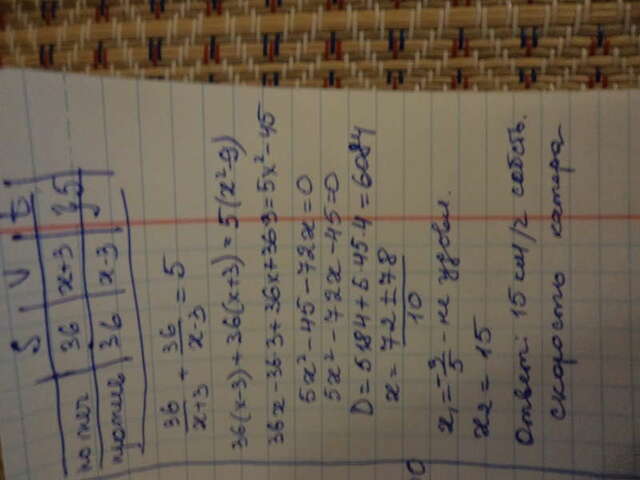 S V t
по теч 36 x+3 } 5
против 36 x-3
36/x+3 + 36/x-3 = 5
36(x-3)+36(x+3)=5(x²-9)
36x-36·3+36x+36·3=5x²-45
5x²-45-72x=0
5x²-72x-45=0
D=5184+5·45·4=6084
x=72±78/10
x₁=-3/5 - не удовл.
x₂=15
Ответ: 15 км/ч собств.
скорость катера